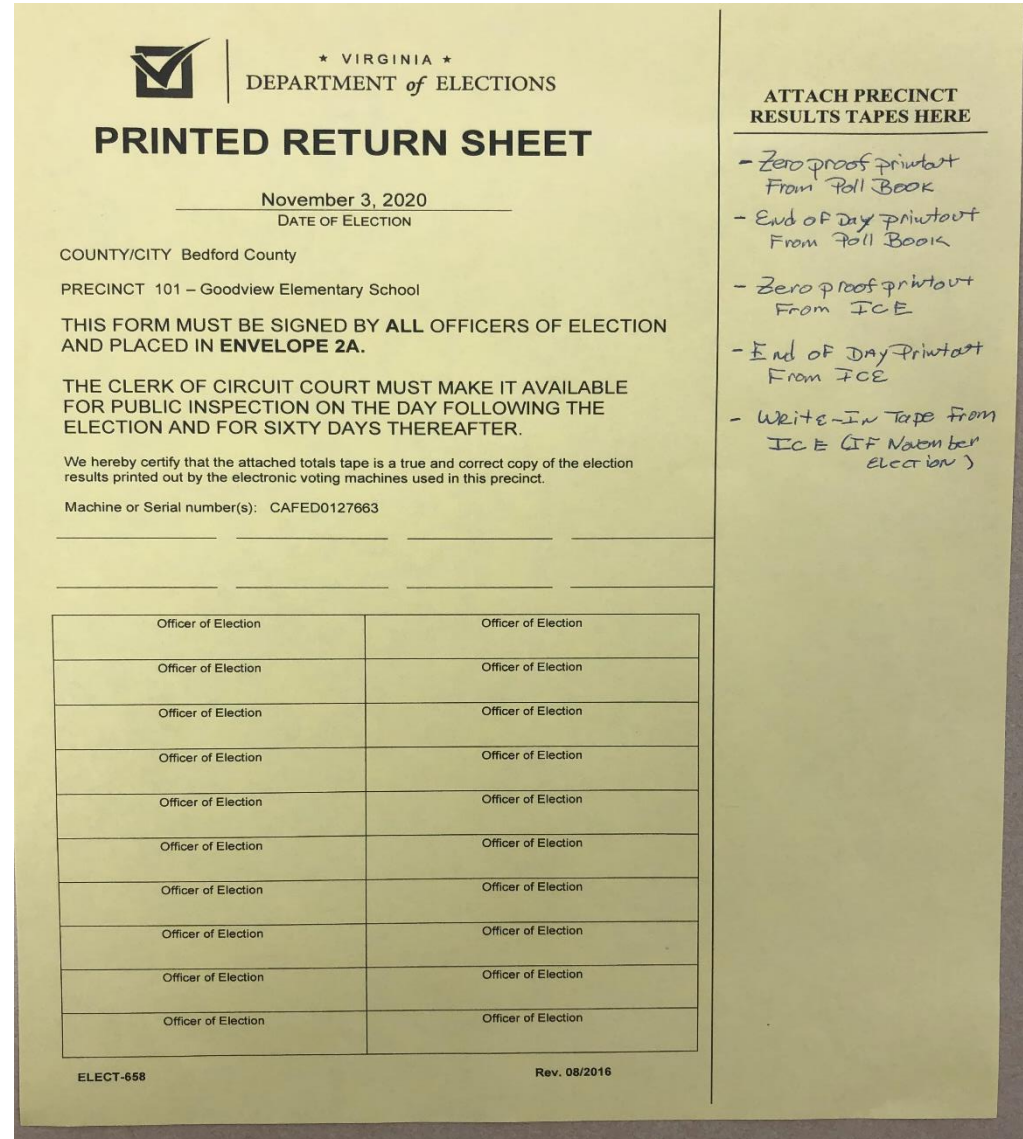 ★ VIRGINIA ★
DEPARTMENT of ELECTIONS
PRINTED RETURN SHEET
November 3, 2020
DATE OF ELECTION
COUNTY/CITY Bedford County
PRECINCT 101 – Goodview Elementary School
THIS FORM MUST BE SIGNED BY ALL OFFICERS OF ELECTION
AND PLACED IN ENVELOPE 2A.
THE CLERK OF CIRCUIT COURT MUST MAKE IT AVAILABLE
FOR PUBLIC INSPECTION ON THE DAY FOLLOWING THE
ELECTION AND FOR SIXTY DAYS THEREAFTER.
We hereby certify that the attached totals tape is a true and correct copy of the election
results printed out by the electronic voting machines used in this precinct.
Machine or Serial number(s): CAFED0127663
Officer of Election Officer of Election
Officer of Election Officer of Election
Officer of Election Officer of Election
Officer of Election Officer of Election
Officer of Election Officer of Election
Officer of Election Officer of Election
Officer of Election Officer of Election
Officer of Election Officer of Election
Officer of Election Officer of Election
Officer of Election Officer of Election
ELECT-658 Rev. 08/2016
ATTACH PRECINCT
RESULTS TAPES HERE
- Zero proof printout
From Poll Book
- End of Day printout
From Poll Book
- Zero proof printout
From ICE
- End of Day Printout
From ICE
- Write-In Tape From
ICE (IF November
Election)